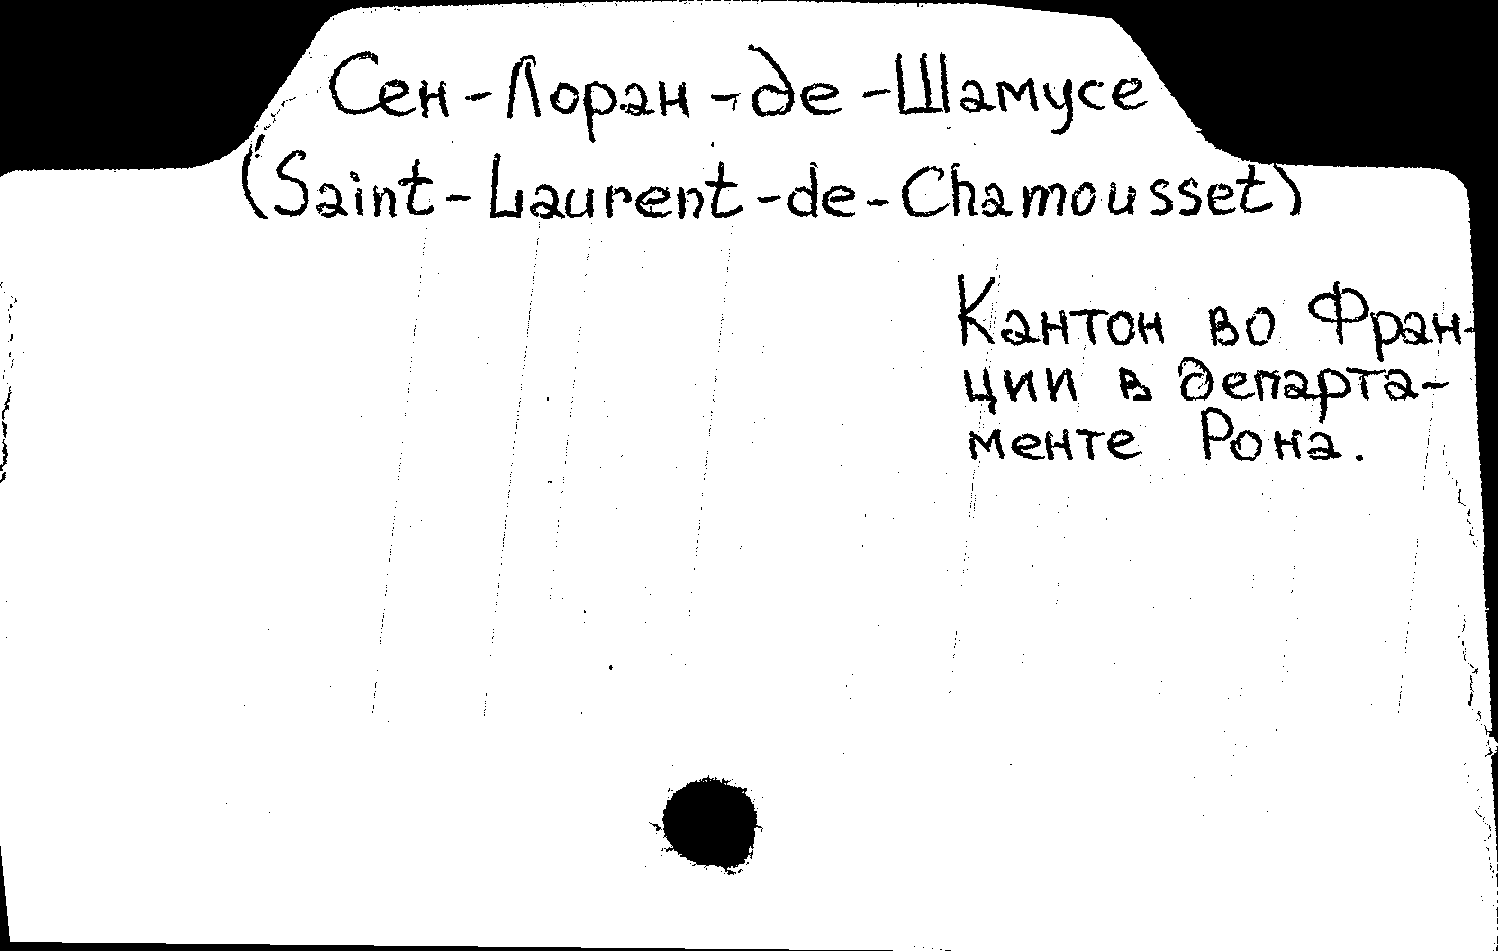 Сен-Лоран-де-Шамусе
(Saint-Laurent-de-Chamousset)
Кантон во Фран-
ции в департа-
менте Рона.